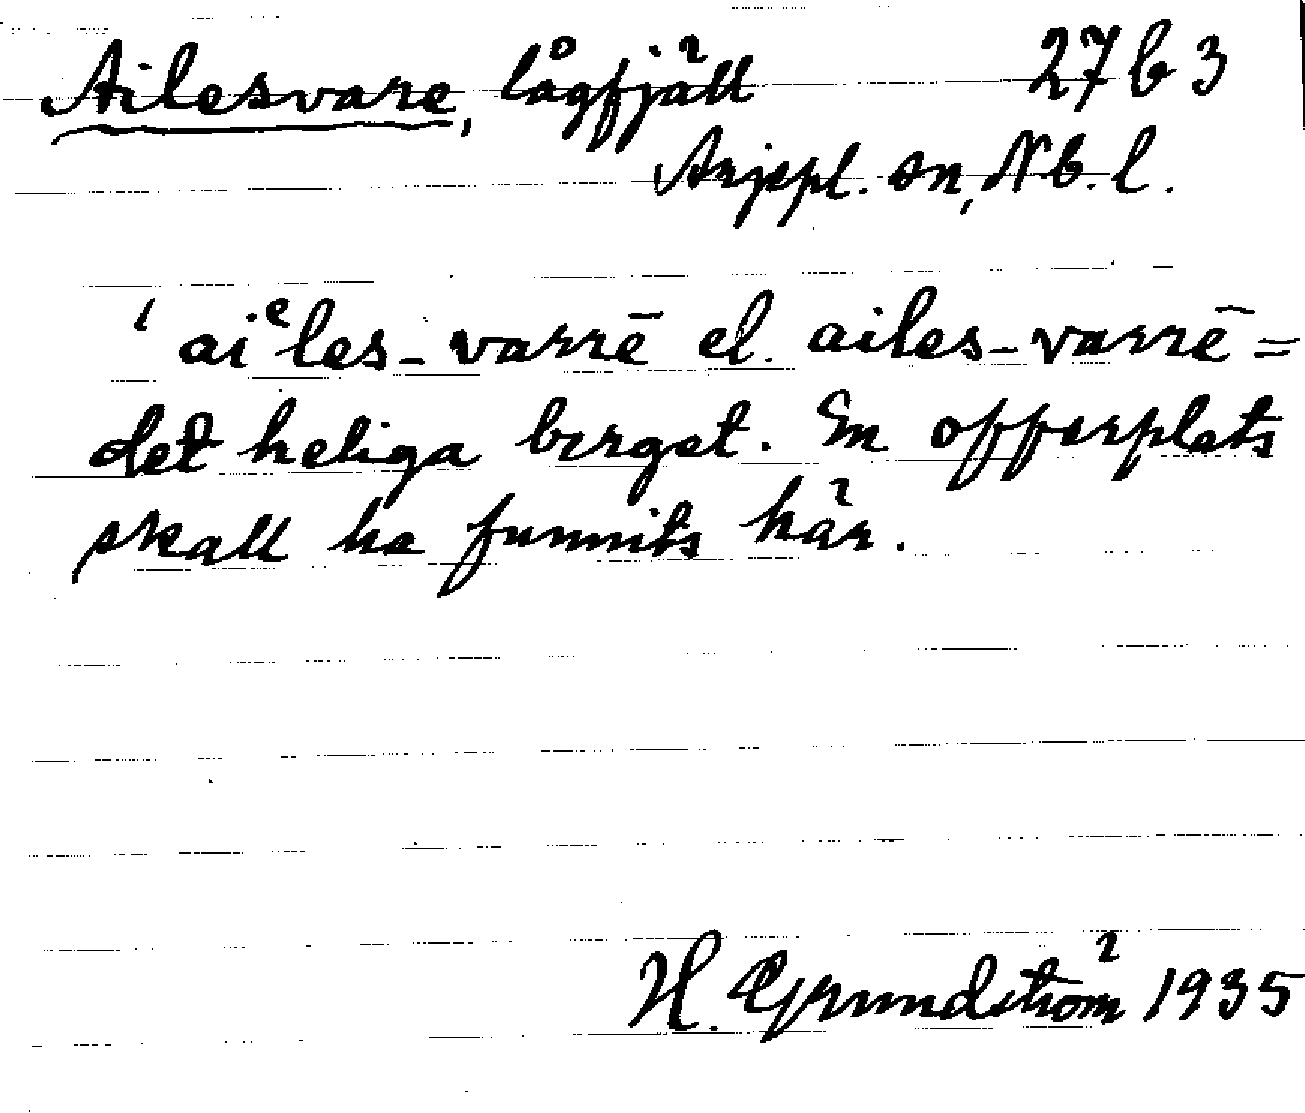 Ailesvare, lågfjäll 27 b 3
Arjepl. sn, Nb. l.
ˈaiᵉles-varrē el. ailes-varrē =
det heliga berget. En offerplats
skall ha funnits här.
H. Grundström 1935